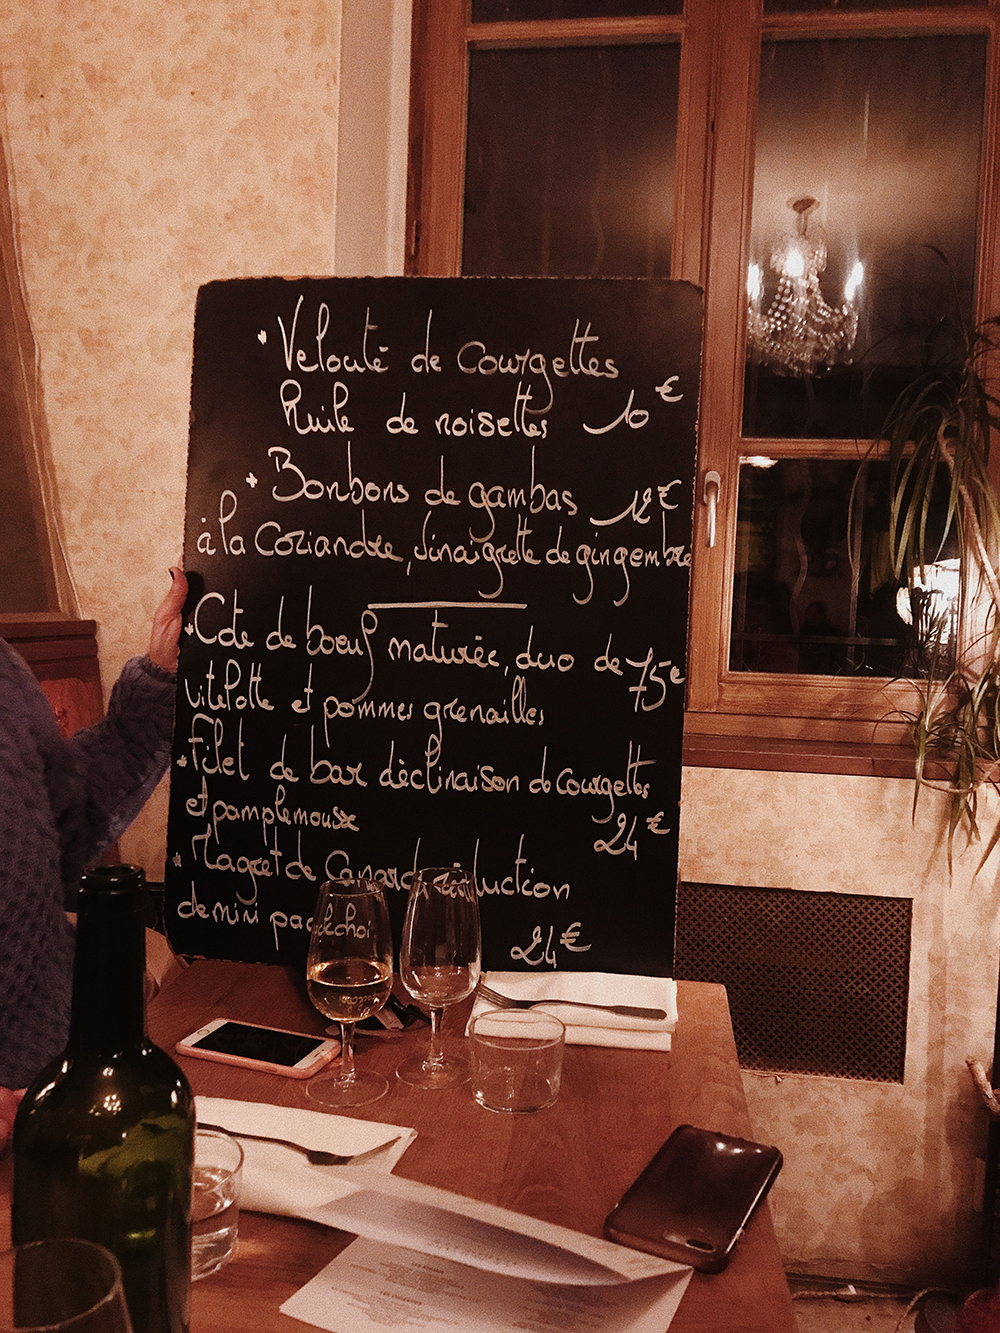 * Velouté de Courgettes
huile de noisettes 10€
* Bonbons de gambas 12€
à la Coriandre, Vinaigrette de gingembre
* Cote de boeuf maturée, duo de 75€
vitelotte et pommes grenailles
* Filet de bar déclinaison de courgettes
et pamplemousse 24€
* Magret de Canard réduction
de mini packchoi 24€